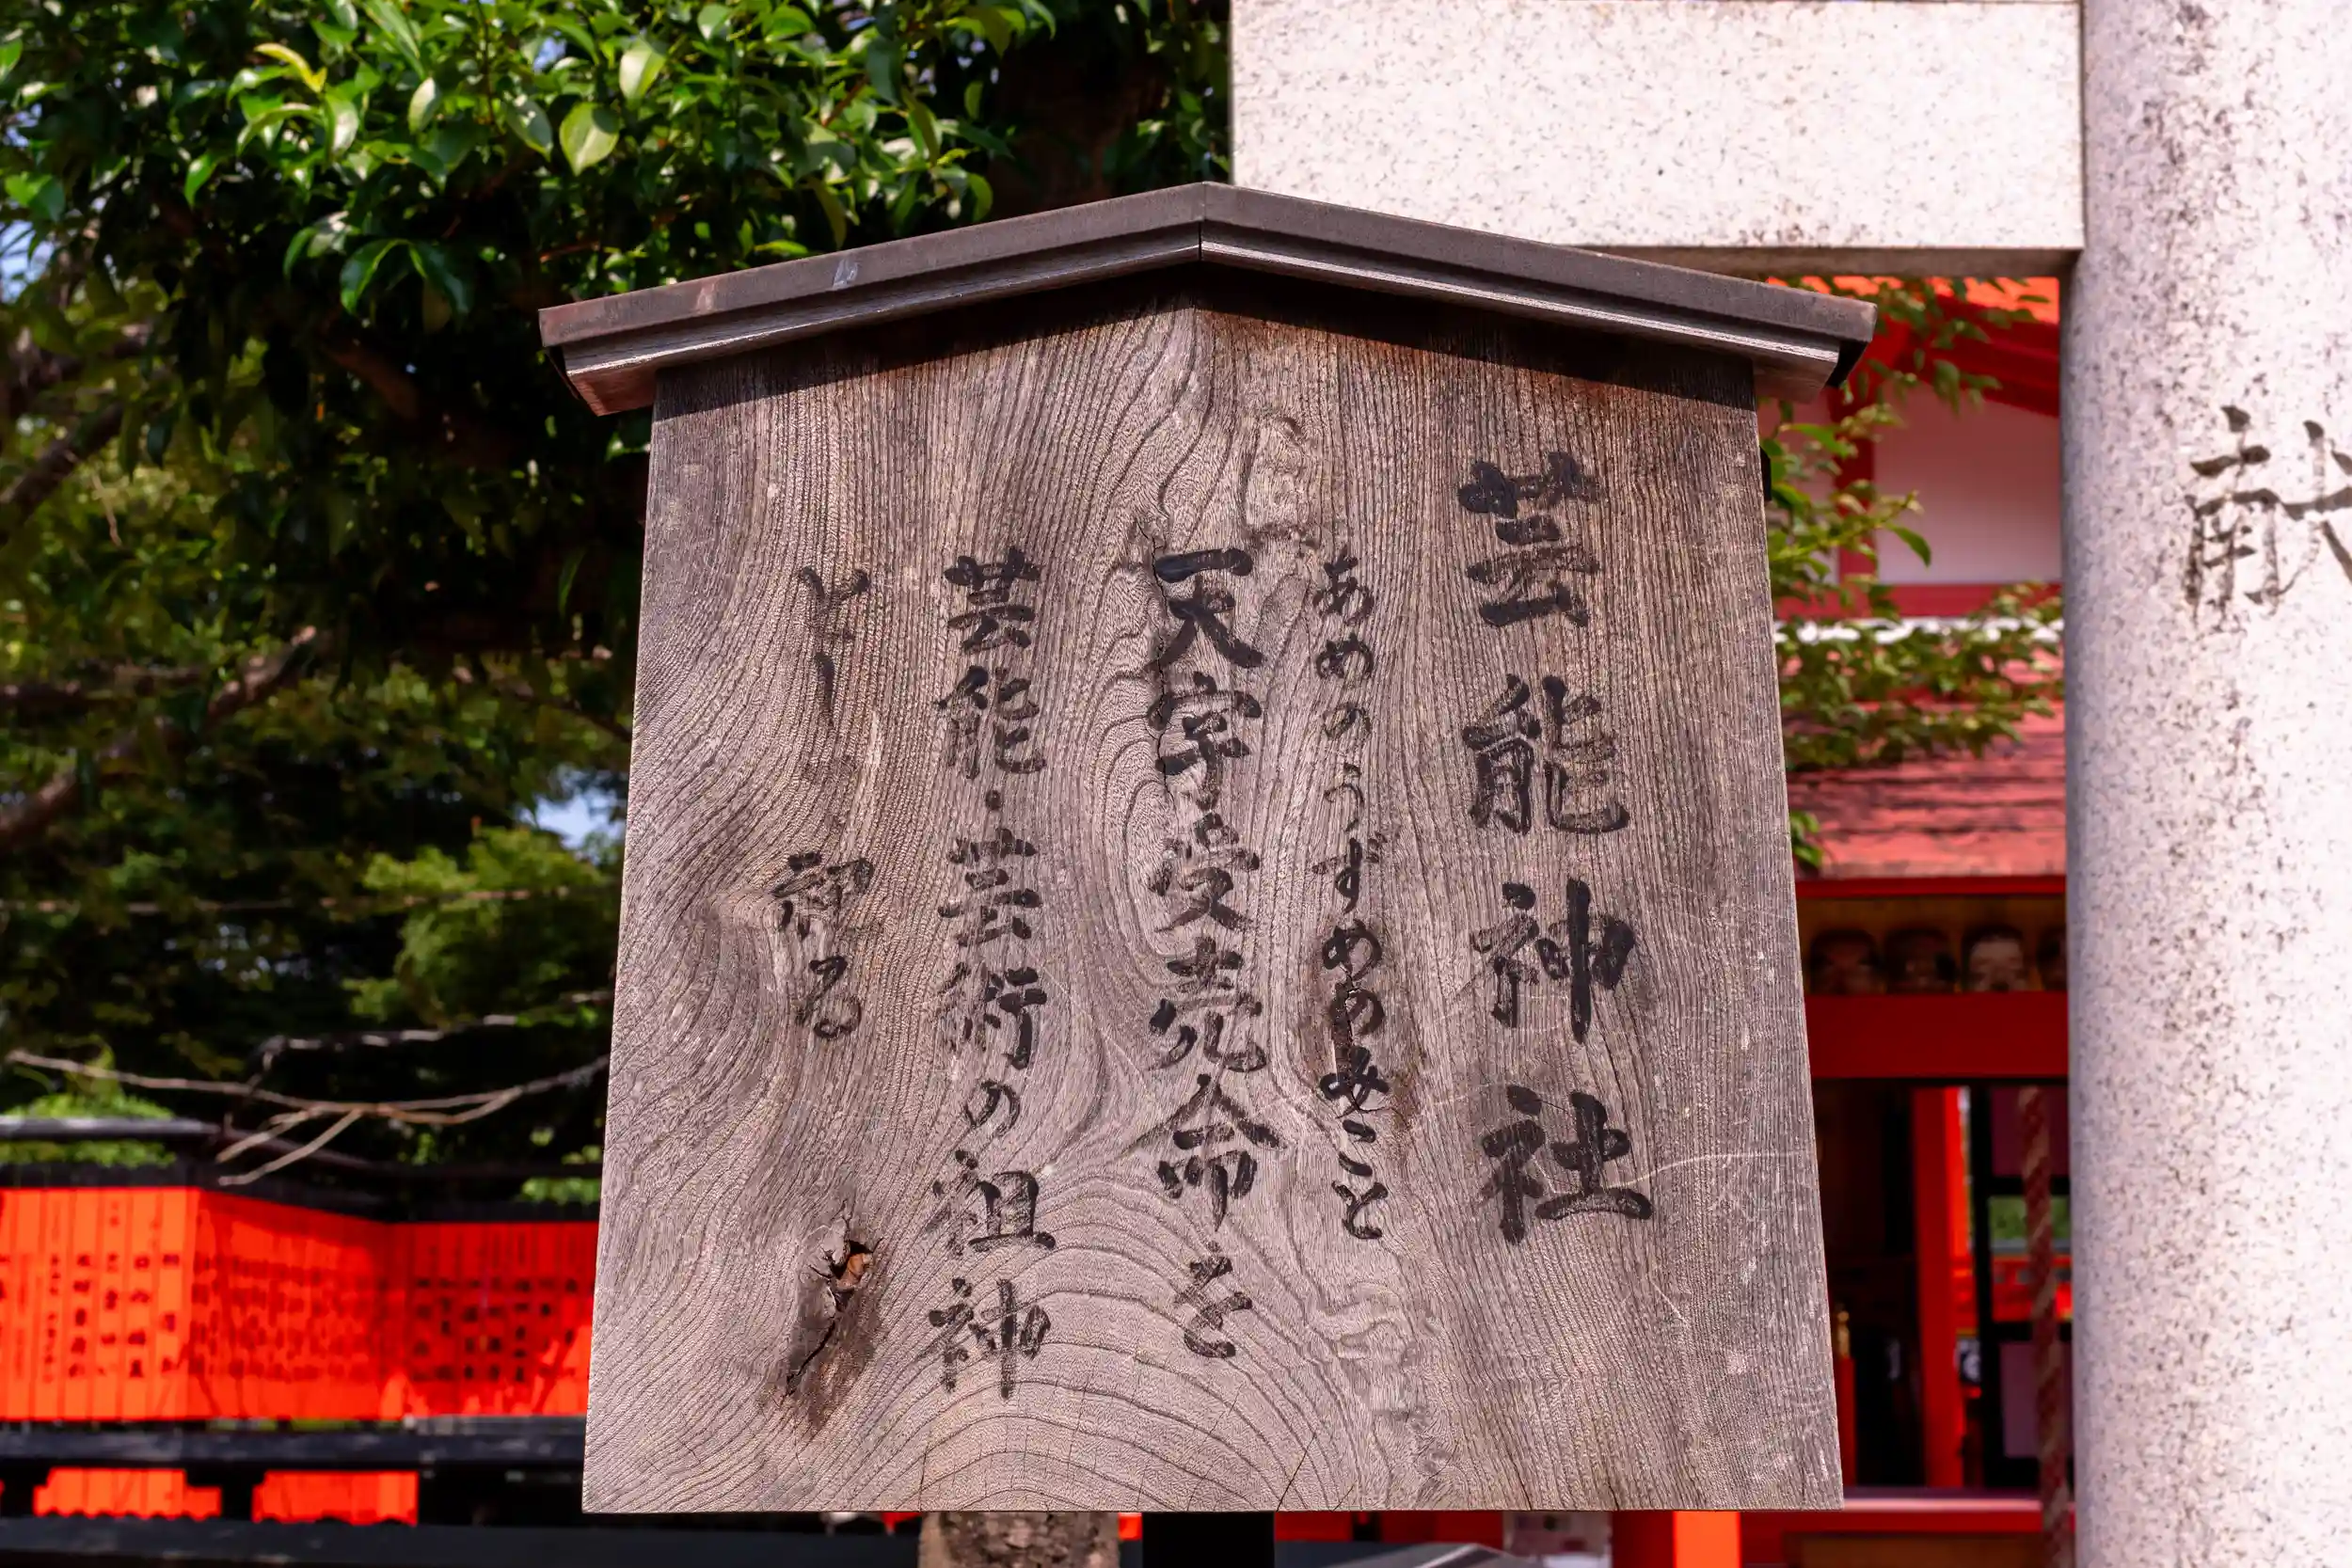 芸能神社
あめのうずめのみこと
天宇受売命を
芸能・芸術の祖神
として祀る
献